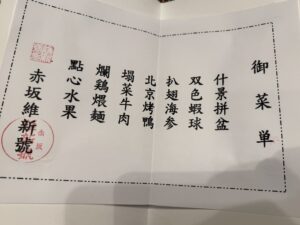 御菜単
什景拼盆
双色蝦球
扒翅海参
北京烤鴨
塌菜牛肉
爛鶏煨麺
點心水果
赤坂維新號